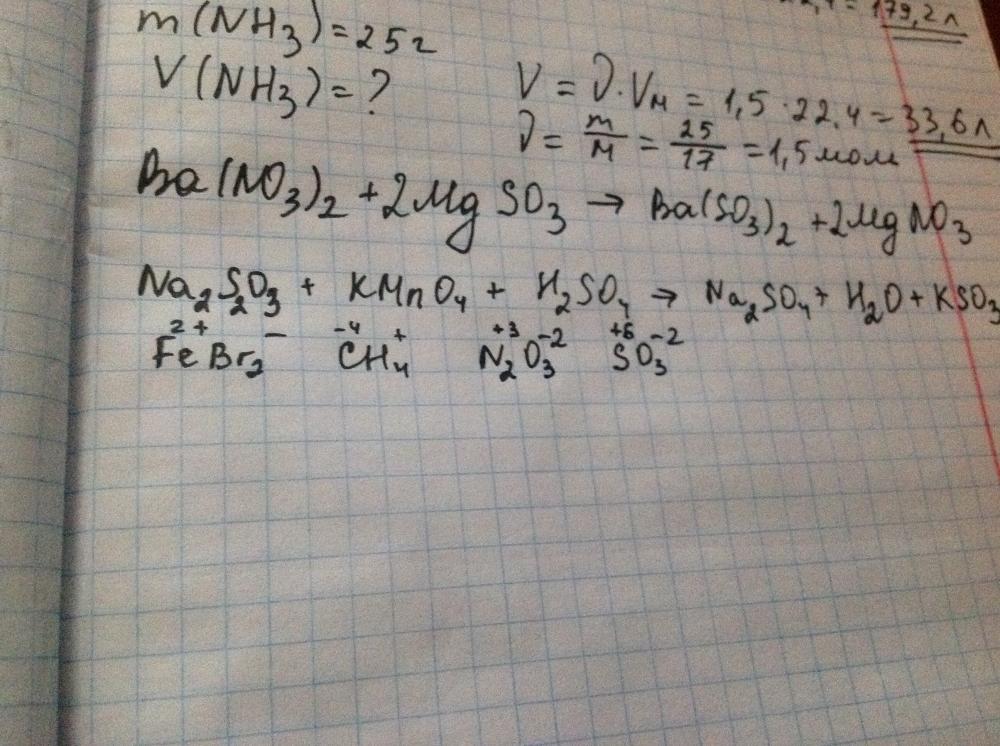 = 179,2 л
m(NH₃)=25г
V(NH₃)=?
V = ν·Vм = 1,5·22,4 = 33,6 л
ν = m/M = 25/17 = 1,5 мол
Ba(NO₃)₂ + 2Mg SO₃ → Ba(SO₃)₂ + 2Mg NO₃
Na₂S₂O₃ + KMnO₄ + H₂SO₄ → Na₂SO₄ + H₂O + KSO₃
2+ − -4 + +3 -2 +6 -2
FeBr₂ CH₄ N₂O₃ SO₃